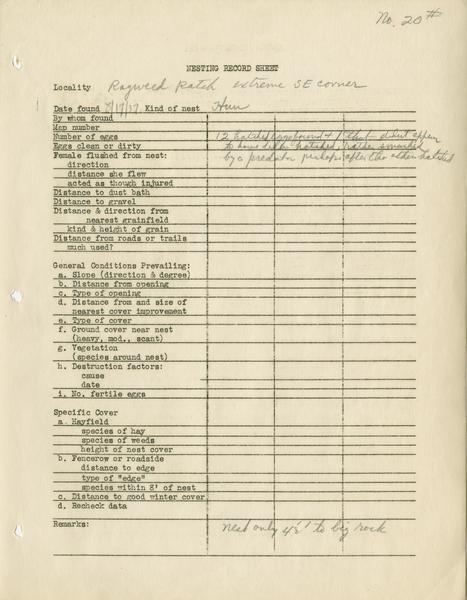 No. 20#
NESTING RECORD SHEET
Locality Ragweed Patch extreme SE corner
Date found 7/17/37 Kind of nest Hun
By whom found
Map number
Number of eggs 12 hatched eggs found + 1 that didn't appear
Eggs clean or dirty to have hatched, rather smashed
Female flushed from nest: by a predator perhaps after the others hatched
direction
distance she flew
acted as though injured
Distance to dust bath
Distance to gravel
Distance & direction from
nearest grainfield
kind & height of grain
Distance from roads or trails
much used?
General Conditions Prevailing:
a. Slope (direction & degree)
b. Distance from opening
c. Type of opening
d. Distance from and size of
nearest cover improvement
e. Type of cover
f. Ground cover near nest
(heavy, mod., scant)
g. Vegetation
(species around nest)
h. Destruction factors:
cause
date
i. No. fertile eggs
Specific Cover
a. Hayfield
species of hay
species of weeds
height of nest cover
b. Fencerow or roadside
distance to edge
type of "edge"
species within 8' of nest
c. Distance to good winter cover
d. Recheck data
Remarks: Nest only 4½' to big rock